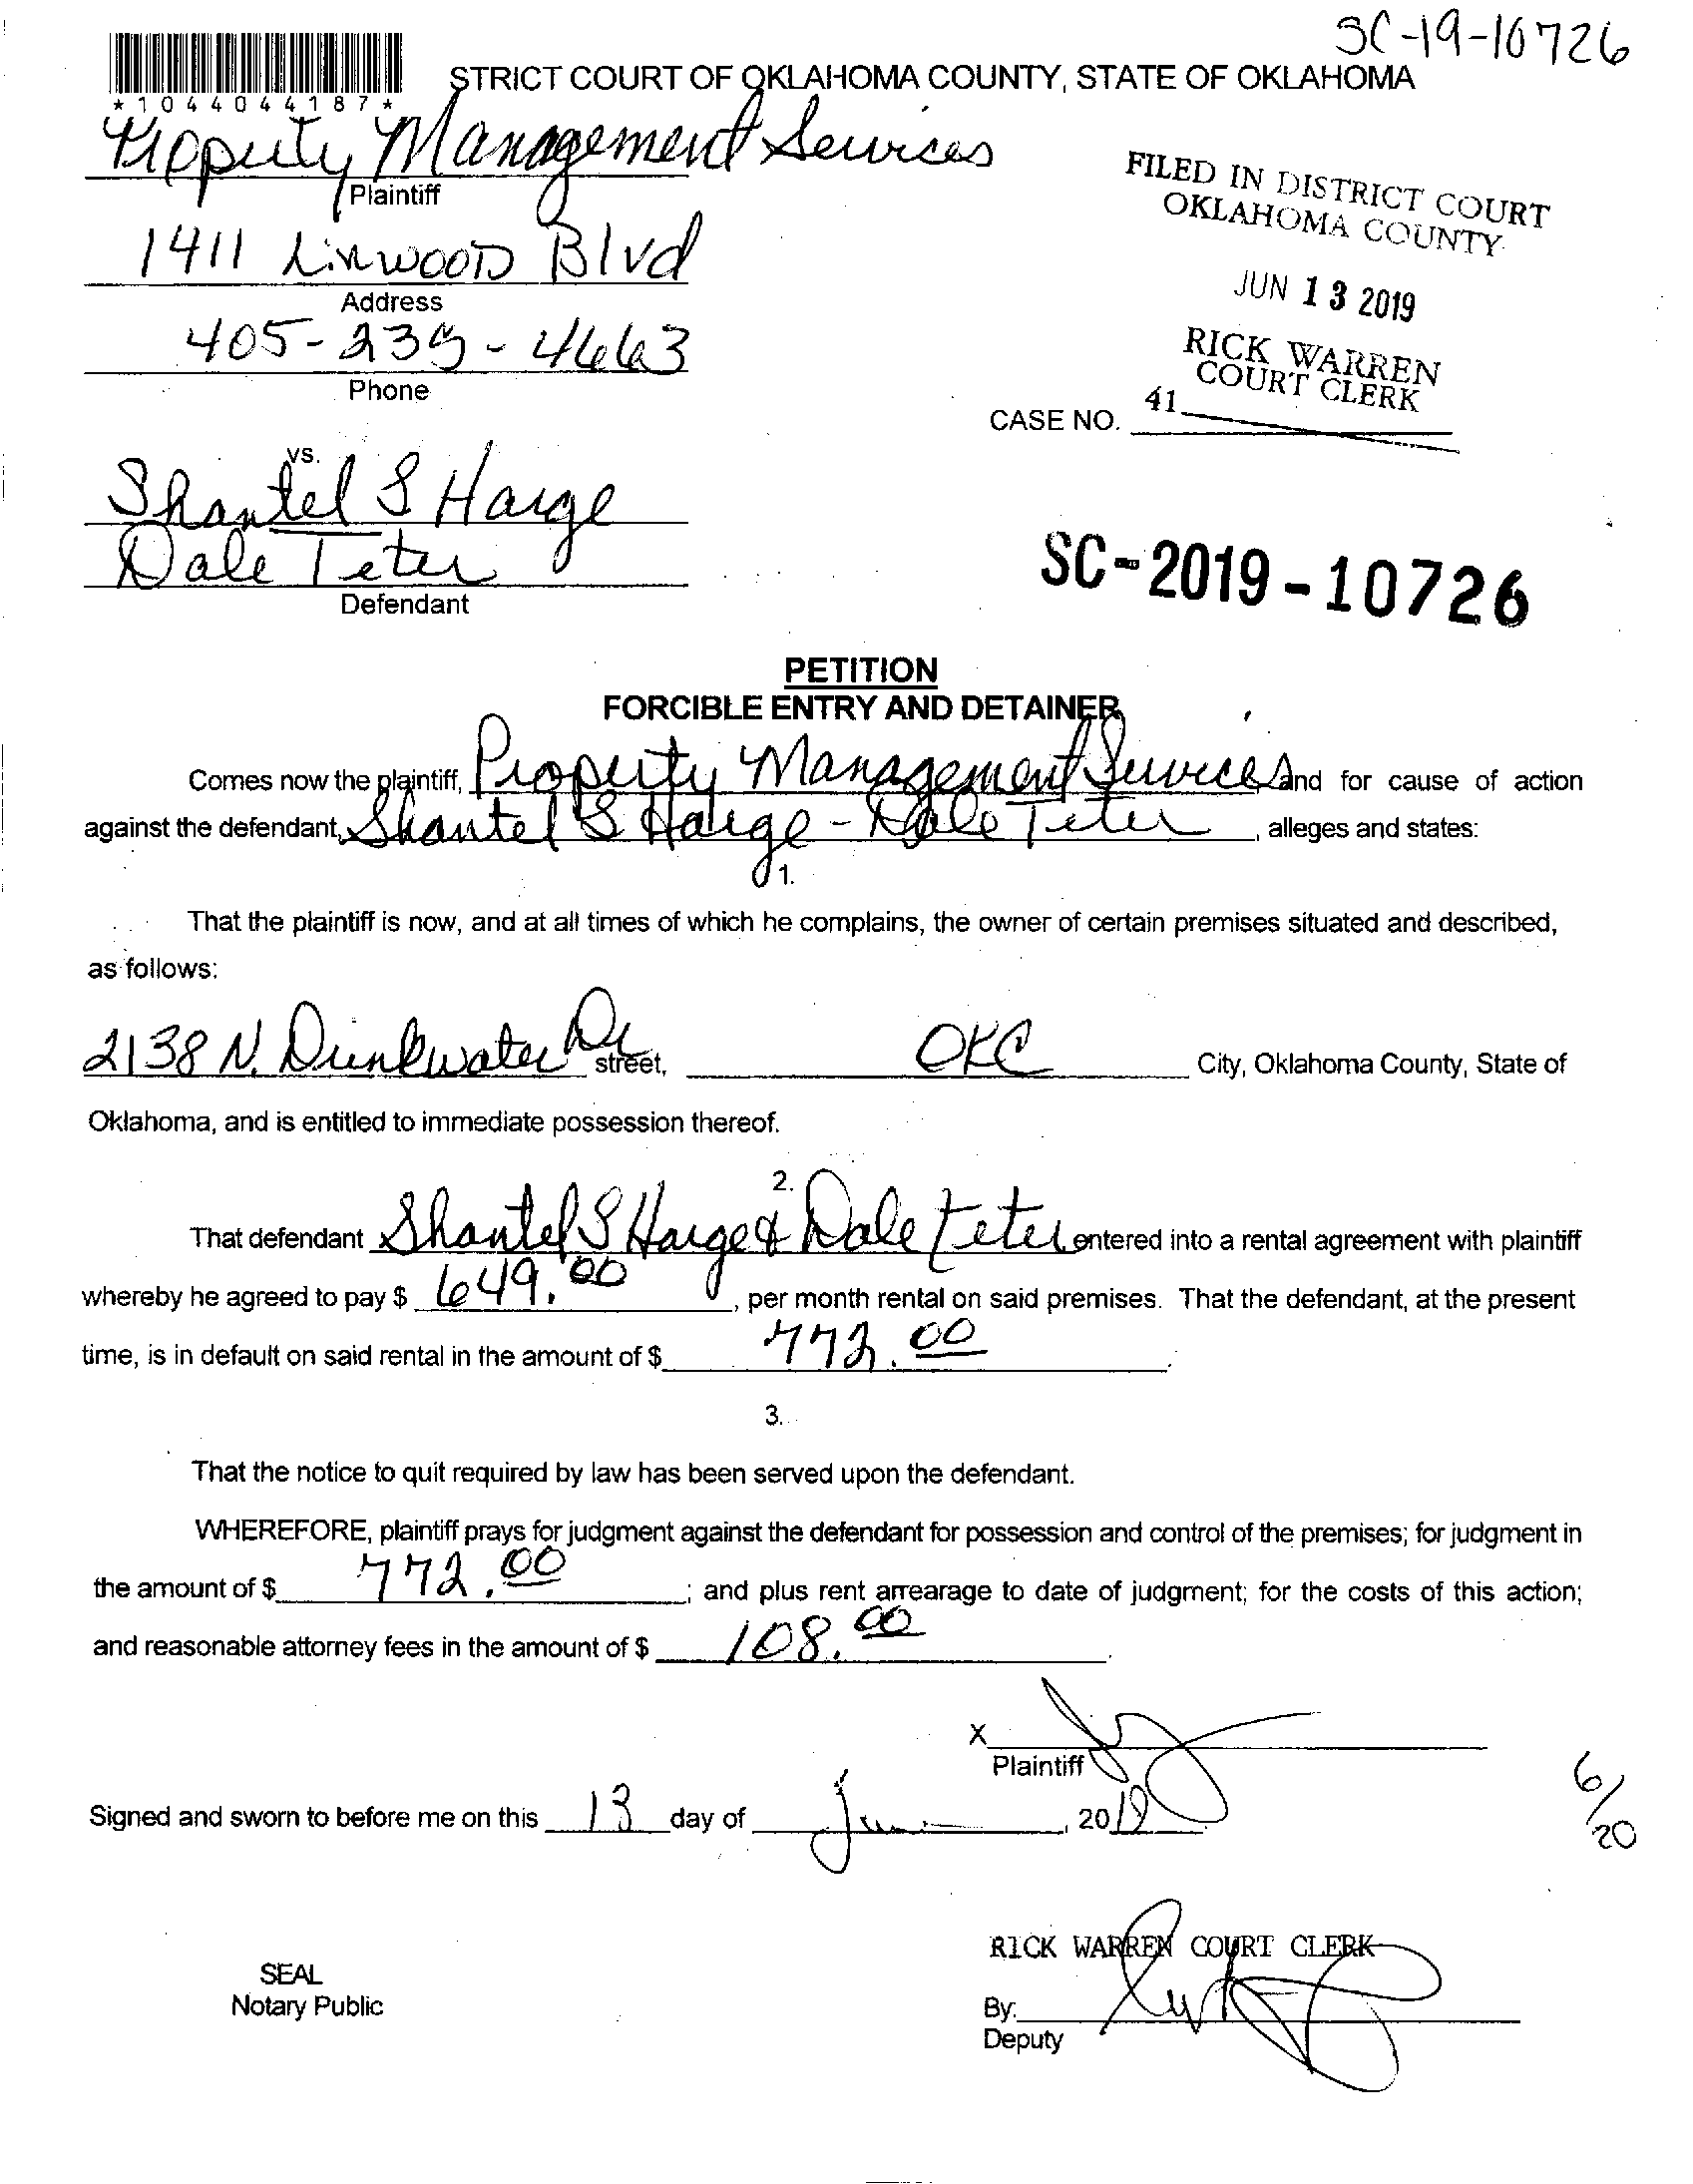 SC-19-10726
*1044044187*
STRICT COURT OF OKLAHOMA COUNTY, STATE OF OKLAHOMA
Property Management Services
Plaintiff
FILED IN DISTRICT COURT
OKLAHOMA COUNTY
1411 Linwood Blvd
Address
JUN 13 2019
405-235-4663
Phone
RICK WARREN
COURT CLERK
41
CASE NO.
vs.
Shantel S Harge
Dale Teter
Defendant
SC-2019-10726
PETITION
FORCIBLE ENTRY AND DETAINER
Comes now the plaintiff, Property Management Services and for cause of action
against the defendant, Shantel S Harge - Dale Teter, alleges and states:
1.
That the plaintiff is now, and at all times of which he complains, the owner of certain premises situated and described,
as follows:
2138 N. Drinkwater Dr street, OKC City, Oklahoma County, State of
Oklahoma, and is entitled to immediate possession thereof.
2.
That defendant Shantel S Harge & Dale Teter entered into a rental agreement with plaintiff
whereby he agreed to pay $ 649.00, per month rental on said premises. That the defendant, at the present
time, is in default on said rental in the amount of $ 772.00.
3.
That the notice to quit required by law has been served upon the defendant.
WHEREFORE, plaintiff prays for judgment against the defendant for possession and control of the premises; for judgment in
the amount of $ 772.00; and plus rent arrearage to date of judgment; for the costs of this action;
and reasonable attorney fees in the amount of $ 108.00.
X
Plaintiff
Signed and sworn to before me on this 13 day of June, 2019
6/20
RICK WARREN COURT CLERK
SEAL
Notary Public
By:
Deputy